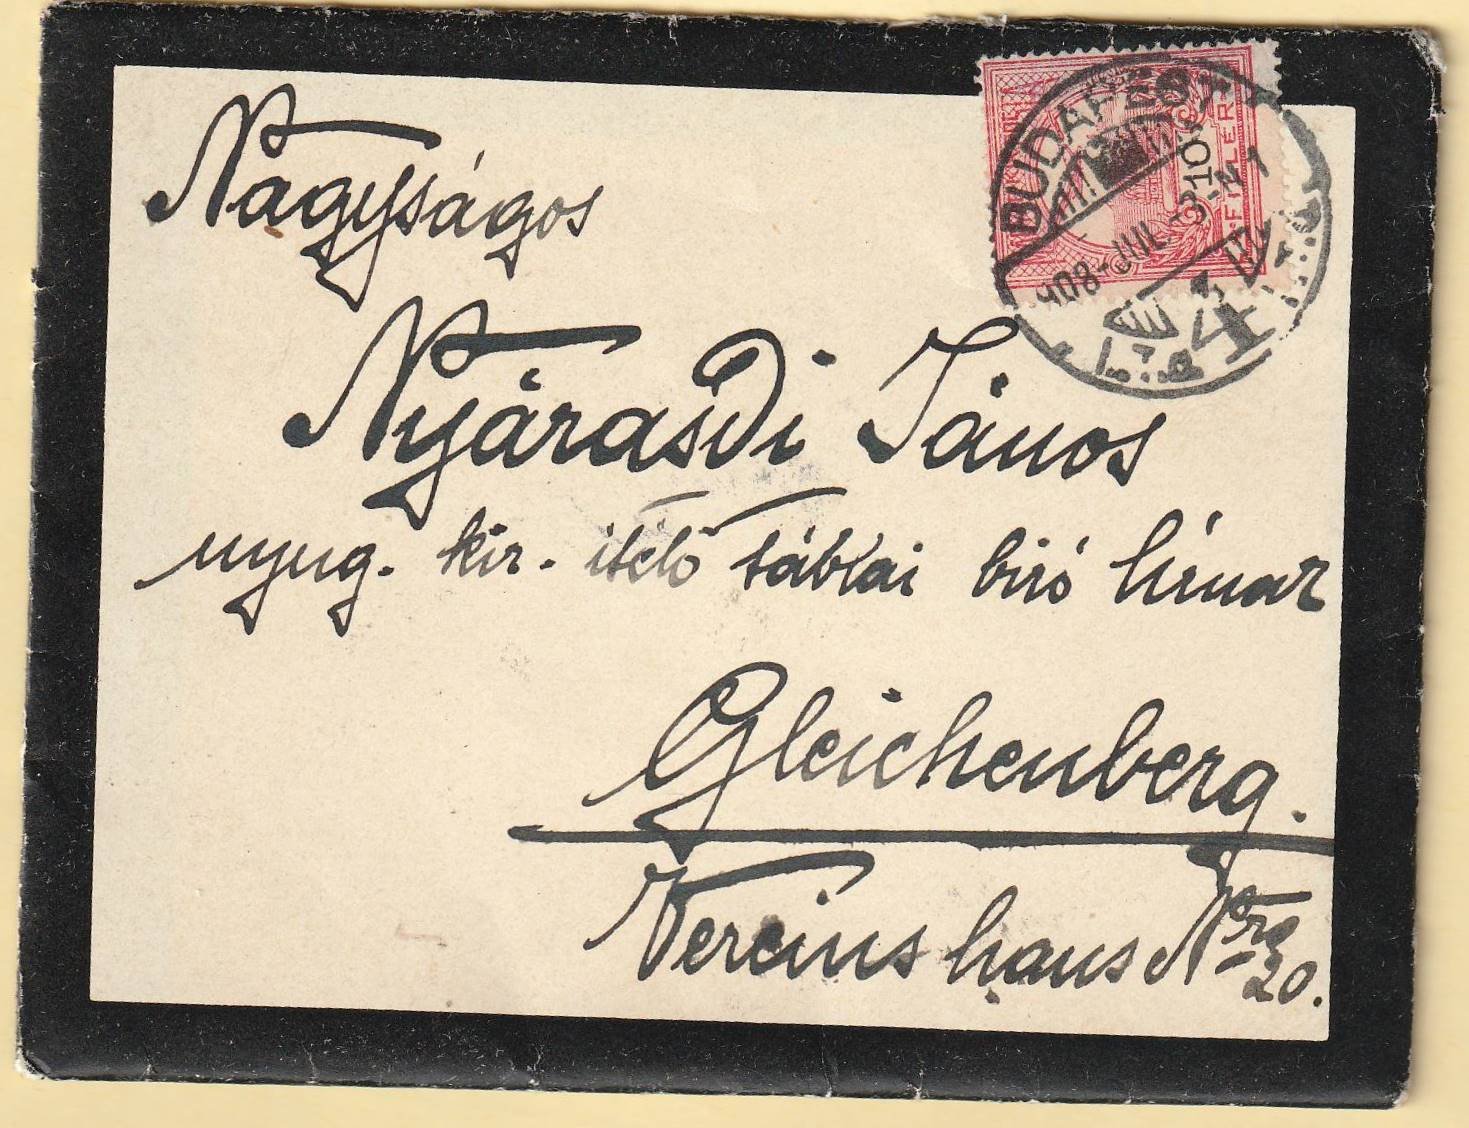 BUDAPEST
908 JUL. 3
10
FILLÉR
4
Nagyságos
Nyárasdi János
nyug. kir. itélő táblai biró úrnak
Gleichenberg.
Vereinshaus Nro 20.